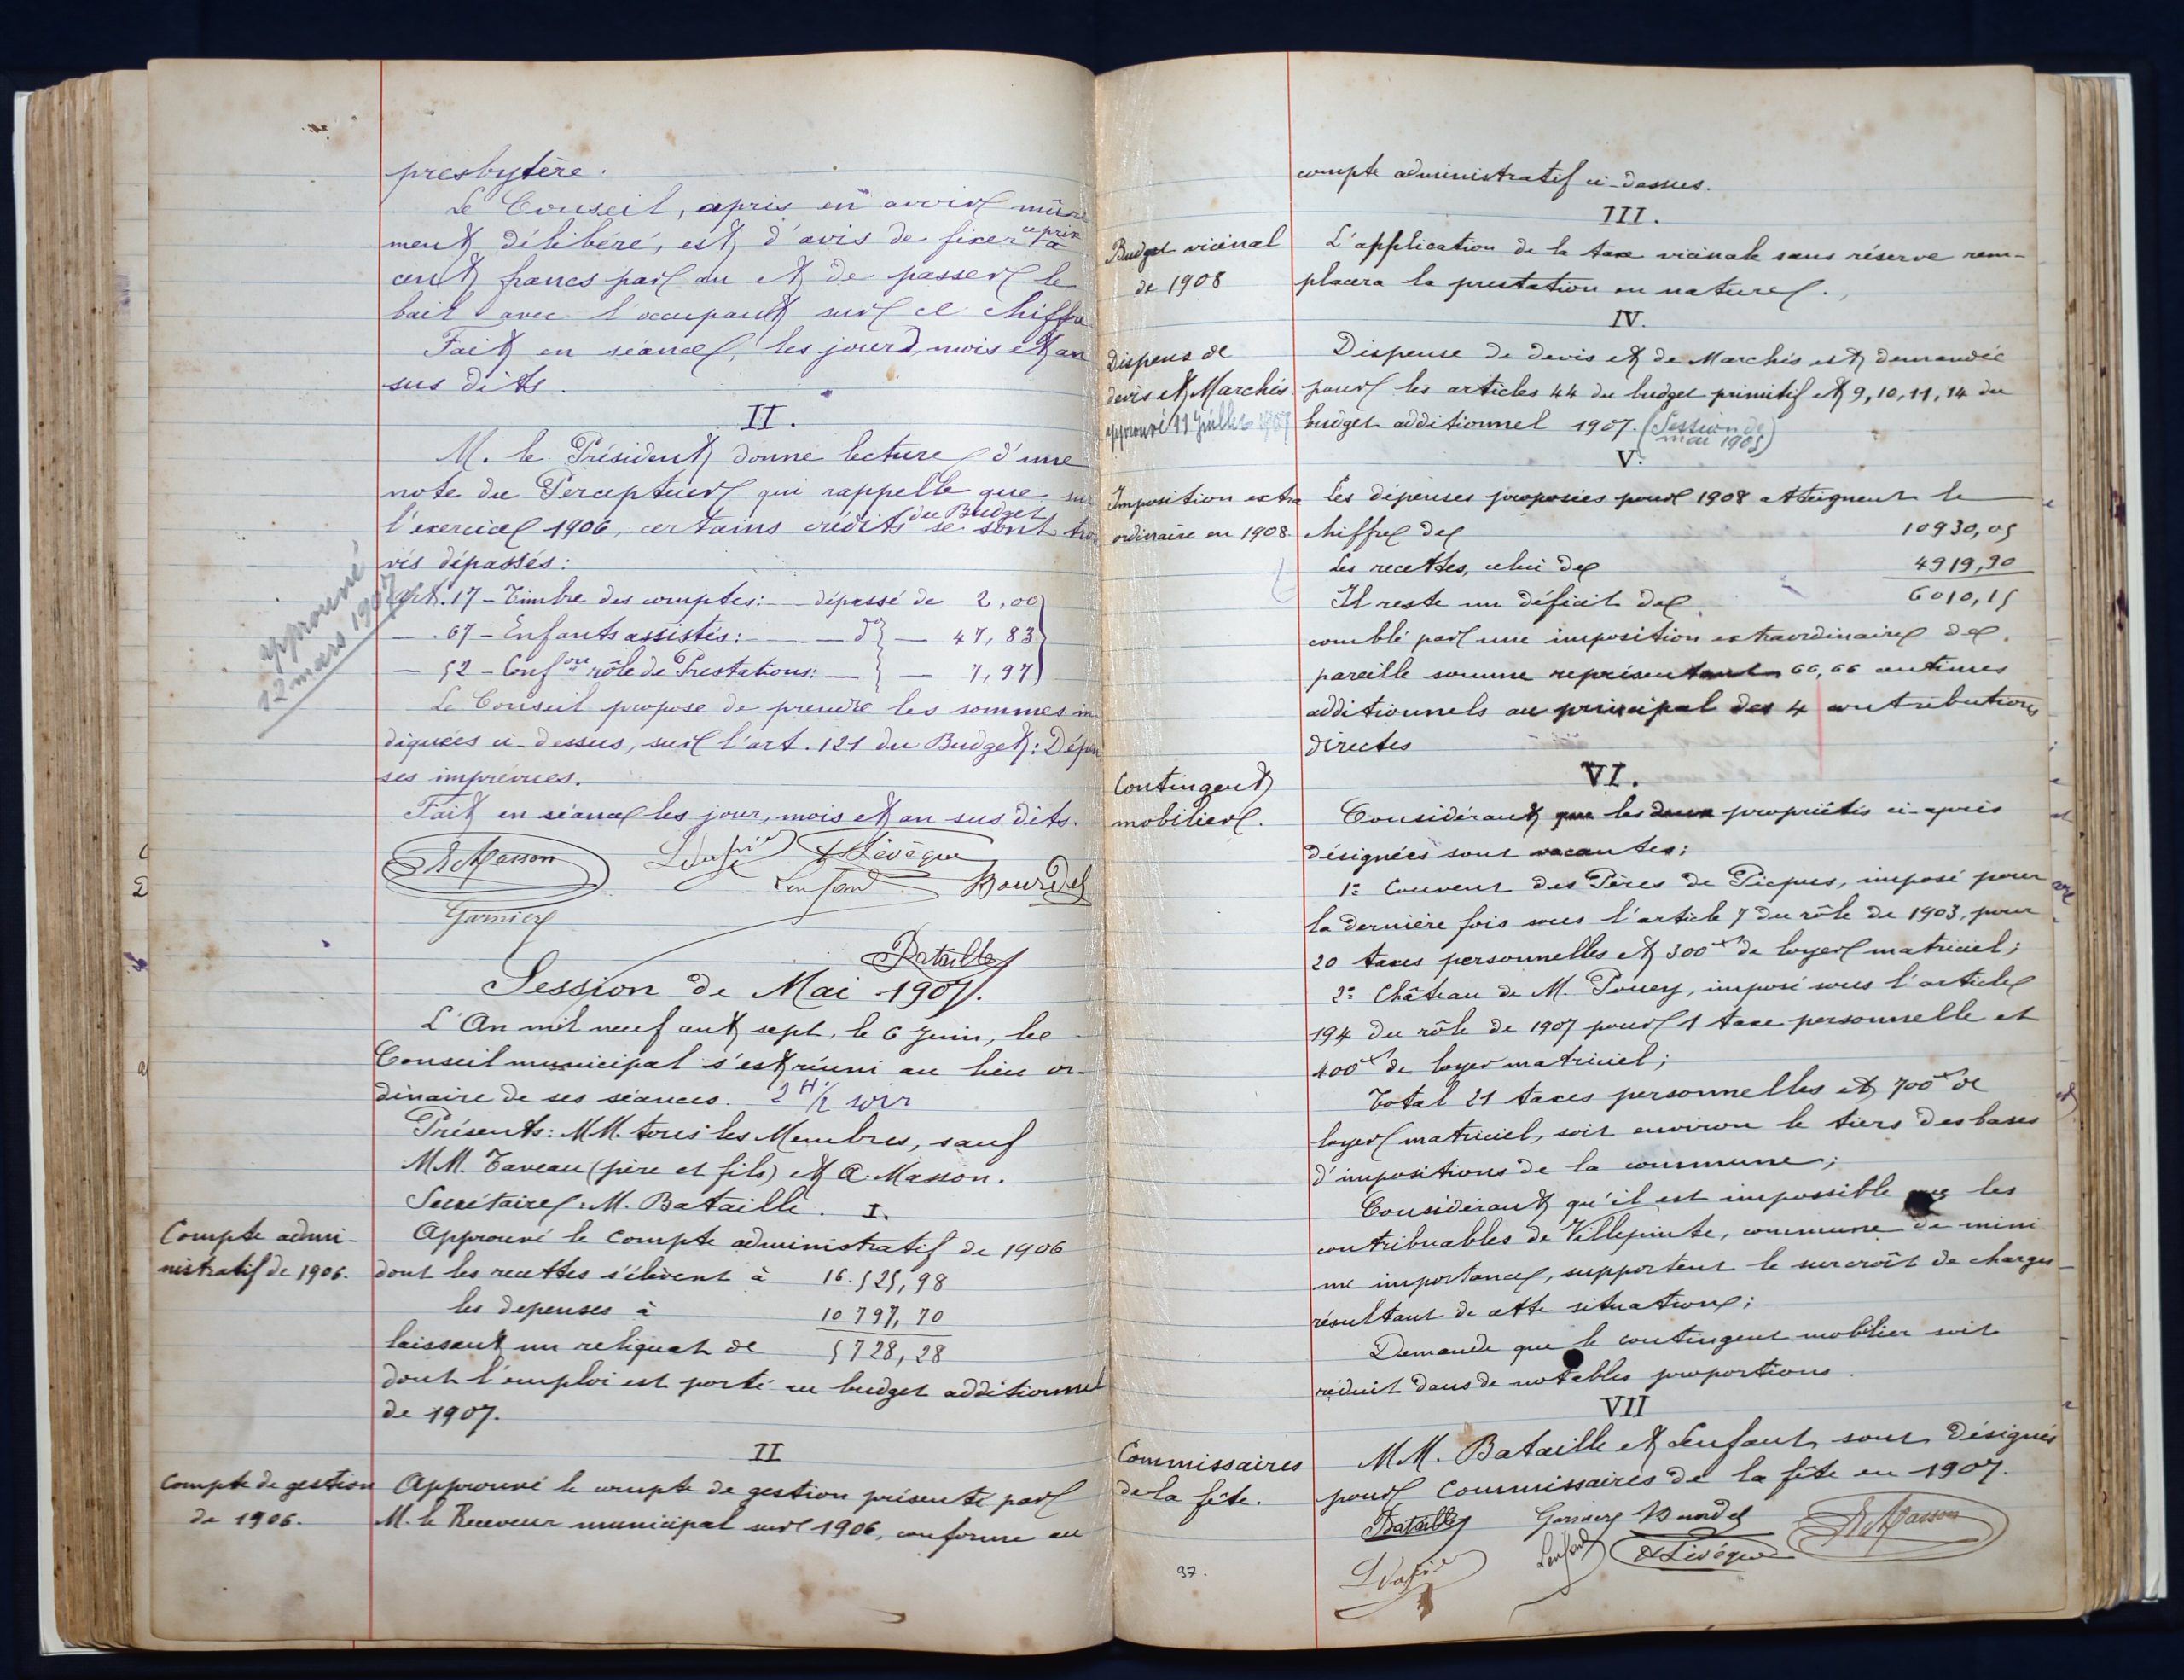 presbytère.
Le Conseil, après en avoir mûre
ment délibéré, est d'avis de fixer ce prix à
cent francs par an et de passer le
bail avec l'occupant sur ce chiffre
Fait en séance, les jours, mois et an
sus dits.
II.
M. le Président donne lecture d'une
note du Percepteur qui rappelle que sur
l'exercice 1906, certains crédits du Budget se sont trou
vés dépassés:
Art. 17 - Timbre des comptes: — dépassé de 2,00
— . 67 - Enfants assistés: — — d° — 47,83
— 52 - Conf on rôle de Prestations: — — 7,97
approuvé
12 mars 1907
Le Conseil propose de prendre les sommes in
diquées ci-dessus, sur l'art. 121 du Budget: Dépen
ses imprévues.
Fait en séance les jour, mois et an sus dits.
A Masson
Lévêque
Lenfant
Bourdel
Garnier
Bataille
Session de Mai 1907.
L'An mil neuf cent sept, le 6 Juin, le
Conseil municipal s'est réuni au lieu or-
dinaire de ses séances. 2 H 1/2 soir
Présents: MM. tous les Membres, sauf
MM. Taveau (père et fils) et A. Masson.
Secrétaire: M. Bataille. I.
Compte admi-
nistratif de 1906.
Approuvé le compte administratif de 1906
dont les recettes s'élèvent à 16.525,98
les depenses à 10 797,70
laissant un reliquat de 5728,28
dont l'emploi est porté au budget additionnel
de 1907.
II
Compte de gestion
de 1906.
Approuvé le compte de gestion présenté par
M. le Receveur municipal sur 1906, conforme au
compte administratif ci-dessus.
III.
Budget vicinal
de 1908
L'application de la taxe vicinale sans réserve rem-
placera la prestation en nature.
IV.
Dispens de
devis et Marchés
approuvé 11 Juillet 1907
Dispense de devis et de Marchés est demandée
pour les articles 44 du budget primitif et 9, 10, 11, 14 du
budget additionnel 1907. (Session de
mai 1905)
V.
Imposition extra
ordinaire en 1908.
Les dépenses proposées pour 1908 atteignent le
chiffre de 10930,05
Les recettes, celui de 4919,90
Il reste un déficit de 6010,15
comblé par une imposition extraordinaire de
pareille somme représentant 66,66 centimes
additionnels au principal des 4 contributions
directes
VI.
Contingent
mobilier.
Considérant que les deux propriétés ci-après
désignées sont vacantes:
1° Couvent des Pères de Picpus, imposé pour
la dernière fois sous l'article 7 du rôle de 1903, pour
20 taxes personnelles et 300 de loyer matriciel;
2° Château de M. Pouey, imposé sous l'article
194 du rôle de 1907 pour 1 taxe personnelle et
400 de loyer matriciel;
Total 21 taxes personnelles et 700 de
loyer matriciel, soit environ le tiers des bases
d'impositions de la commune;
Considérant qu'il est impossible que les
contribuables de Villepinte, commune de mini
me importance, supportent le surcroît de charges
résultant de cette situation;
Demande que le contingent mobilier soit
réduit dans de notables proportions.
VII
Commissaires
de la fête.
MM. Bataille et Lenfant sont désignés
pour Commissaires de la fête en 1907.
Bataille
Garnier
Bourdel
A Masson
Lenfant
Lévêque
97.